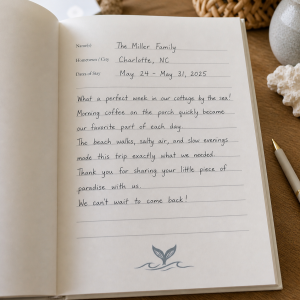 Name(s) The Miller Family
Hometown / City Charlotte, NC
Dates of Stay May 24 - May 31, 2025
What a perfect week in our cottage by the sea!
Morning coffee on the porch quickly became
our favorite part of each day.
The beach walks, salty air, and slow evenings
made this trip exactly what we needed.
Thank you for sharing your little piece of
paradise with us.
We can't wait to come back!